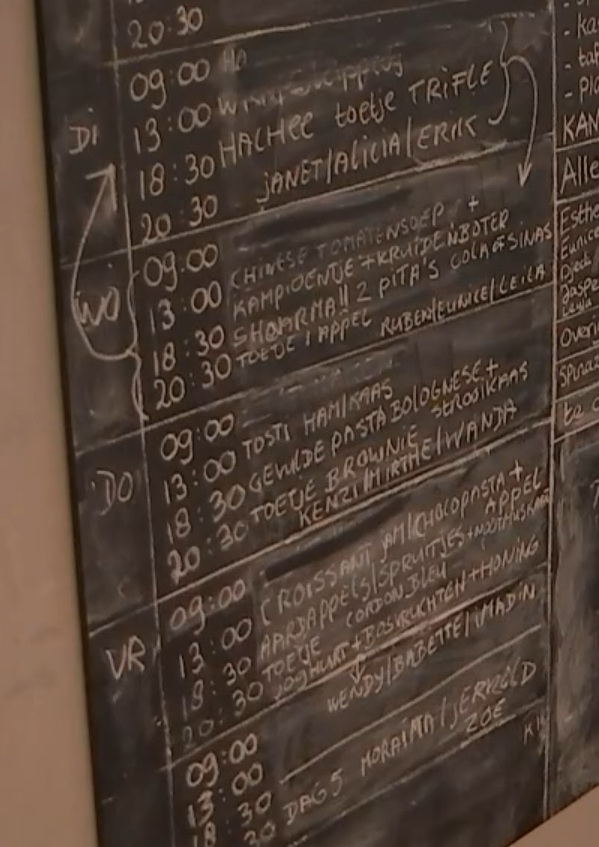 20:30
DI
09:00 HA
13:00
18:30 HACHEE toetje TRIFLE
20:30 JANET/ALICIA/ERIK
WO
09:00
13:00 CHINESE TOMATENSOEP +
KAMPIOENTJE + KRUIDENBOTER
18:30 SHOARMA 2 PITA'S COLA of SINAS
20:30 TOETJE 1 APPEL RUBEN/EUNICE/LEILA
DO
09:00
13:00 TOSTI HAM/KAAS
18:30 GEVULDE PASTA BOLOGNESE + STROOIKAAS
20:30 TOETJE BROWNIE
KENZI/MIRTHE/WANDA
VR
09:00
13:00 CROISSANT JAM/CHOCOPASTA + APPEL
18:30 AARDAPPELS/SPRUITJES + NOOTMUSKAAT
CORDON BLEU
20:30 TOETJE
YOGHURT + BOSVRUCHTEN + HONING
WENDY/BABETTE/IMADIN
09:00
13:00
18:30 DAG 5 MORAIMA/JERVEL D
30 ZOE
KAN
Alle
Esthe
Eunice
Djeck
Jaspe
Overi
te